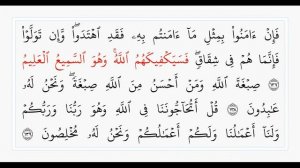 فَإِنْ ءَامَنُوا۟ بِمِثْلِ مَآ ءَامَنتُم بِهِۦ فَقَدِ ٱهْتَدَوا۟ ۖ وَّإِن تَوَلَّوْا۟
فَإِنَّمَا هُمْ فِى شِقَاقٍ ۖ فَسَيَكْفِيكَهُمُ ٱللَّهُ ۚ وَهُوَ ٱلسَّمِيعُ ٱلْعَلِيمُ
١٣٧ صِبْغَةَ ٱللَّهِ ۖ وَمَنْ أَحْسَنُ مِنَ ٱللَّهِ صِبْغَةً ۖ وَنَحْنُ لَهُۥ
عَـٰبِدُونَ ١٣٨ قُلْ أَتُحَآجُّونَنَا فِى ٱللَّهِ وَهُوَ رَبُّنَا وَرَبُّكُمْ
وَلَنَآ أَعْمَـٰلُنَا وَلَكُمْ أَعْمَـٰلُكُمْ وَنَحْنُ لَهُۥ مُخْلِصُونَ ١٣٩